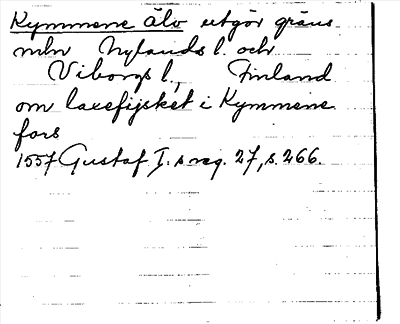 Kymmene älv utgör gräns
mln Nylands l. och
Viborgs l., Finland
om laxefijsket i Kymmene
fors
1557 Gustaf I. s reg. 27, s. 266.